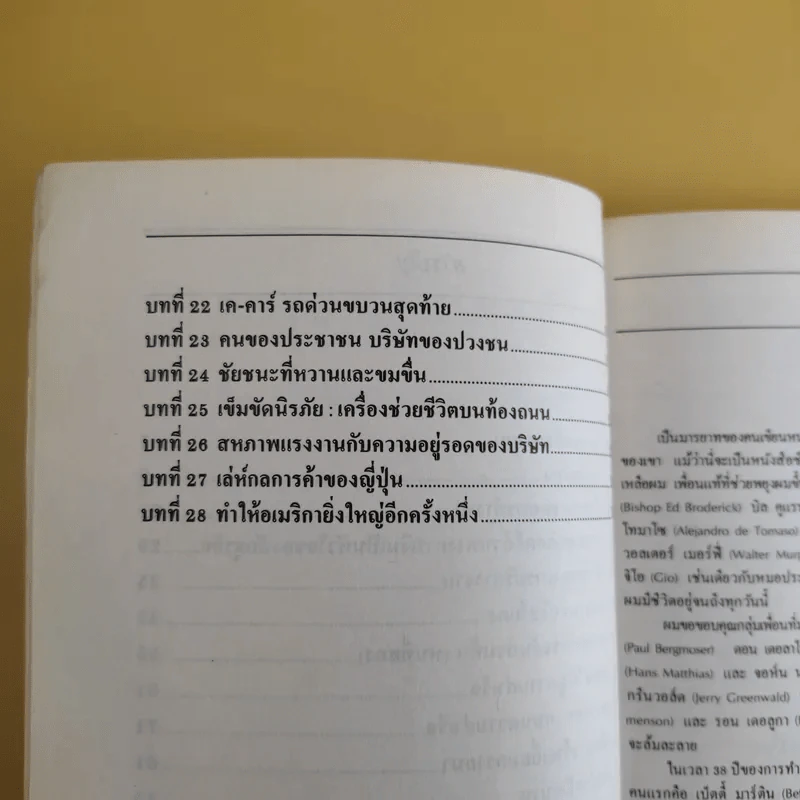 บทที่ 22 เค-คาร์ รถด่วนขบวนสุดท้าย
บทที่ 23 คนของประชาชน บริษัทของปวงชน
บทที่ 24 ชัยชนะที่หวานและขมขื่น
บทที่ 25 เข็มขัดนิรภัย : เครื่องช่วยชีวิตบนท้องถนน
บทที่ 26 สหภาพแรงงานกับความอยู่รอดของบริษัท
บทที่ 27 เล่ห์กลการค้าของญี่ปุ่น
บทที่ 28 ทำให้อเมริกายิ่งใหญ่อีกครั้งหนึ่ง
เป็นมารยาทของคนเขียนหน
ของเขา แม้ว่านี่จะเป็นหนังสือชี
เหลือผม เพื่อนแท้ที่ช่วยพยุงผมขึ้
(Bishop Ed Broderick) บิล
โทมาโซ (Alejandro de Tomaso)
วอลเตอร์ เมอร์ฟี่ (Walter Mur
จิโอ (Gio) เช่นเดียวกับหมอประ
ผมมีชีวิตอยู่จนถึงทุกวันนี้
ผมขอขอบคุณกลุ่มเพื่อนที่ม
(Paul Bergmoser) ดอน เดอลาโ
(Hans Matthias) และ จอห์น น
กรีนวอลด์ (Jerry Greenwald)
menson) และ รอน เดอลูกา (
จะล้มละลาย
ในเวลา 38 ปีของการทำ
คนแรกคือ เบ็ตตี้ มาร์ติน (Be